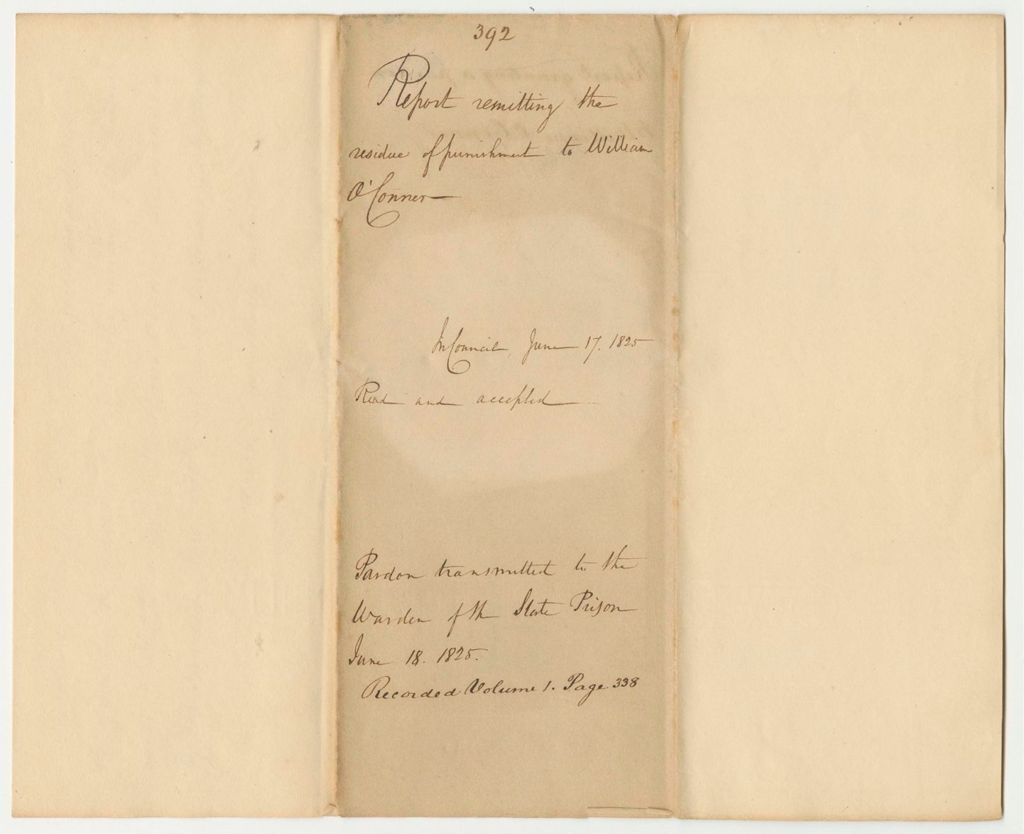 392
Report remitting the
residue of punishment to William
O'Conner
In Council, June 17. 1825
Read and accepted
Pardon transmitted to the
Warden of the State Prison
June 18. 1825.
Recorded Volume 1. Page 338